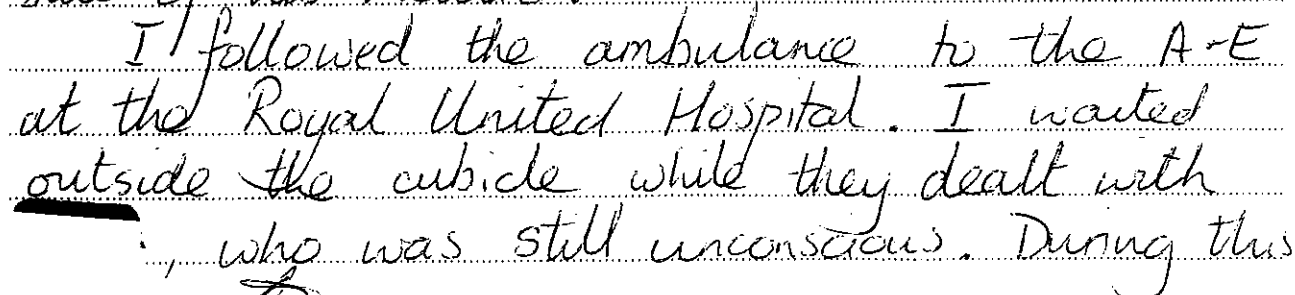 I followed the ambulance to the A-E
at the Royal United Hospital. I waited
outside the cubicle while they dealt with
, who was still unconscious. During this